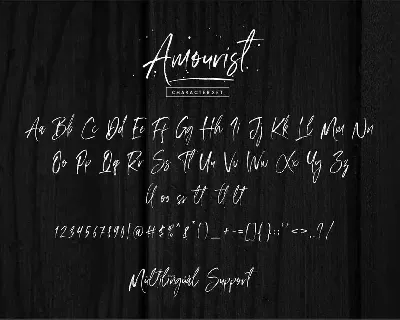 Amourist
CHARACTER SET
Aa Bb Cc Dd Ee Ff Gg Hh Ii Jj Kk Ll Mm Nn
Oo Pp Qq Rr Ss Tt Uu Vv Ww Xx Yy Zz
ll oo sr tt tl lt
1234567890!@#$%^&*()_+-=[]{}:;''<>,.?/
Multilingual Support